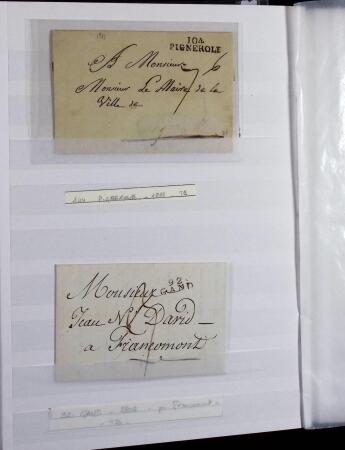 104
PIGNEROLE
A Monsieur
Monsieur Le Maire de la
Ville de
104 PIGNEROLE
92
GAND
Monsieur
Jean Ns David
a Francomont
92 GAND